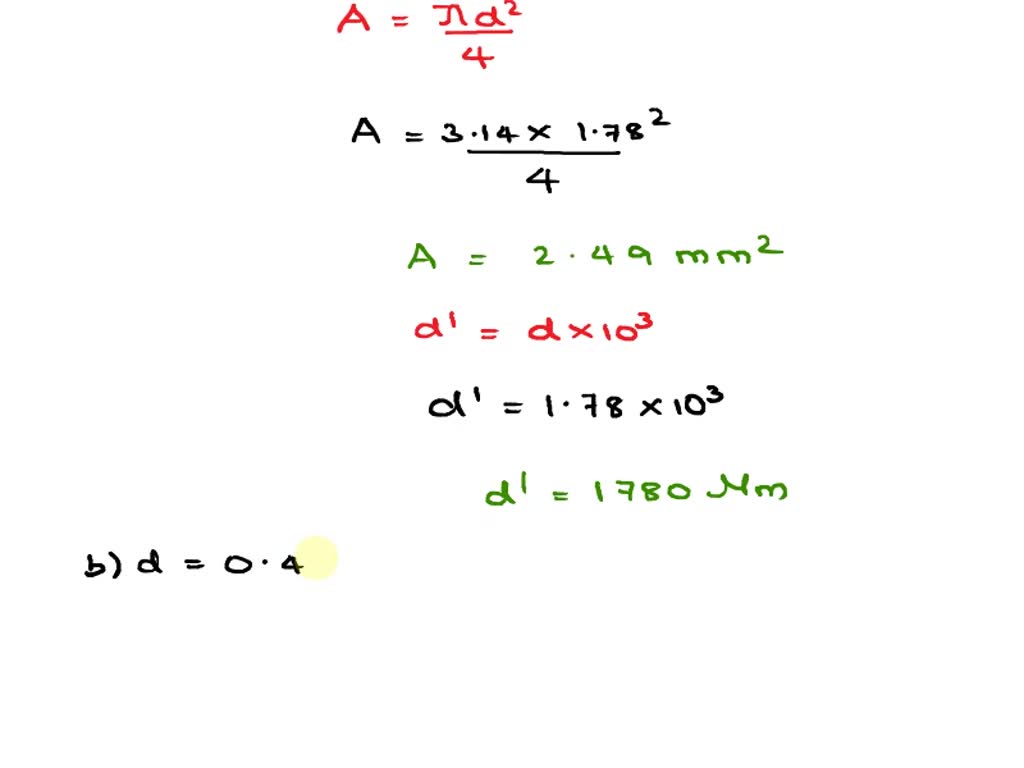 A = πd²/4
A = 3.14 × 1.78²/4
A = 2.49 mm²
d' = d × 10³
d' = 1.78 × 10³
d' = 1780 μm
b) d = 0.4